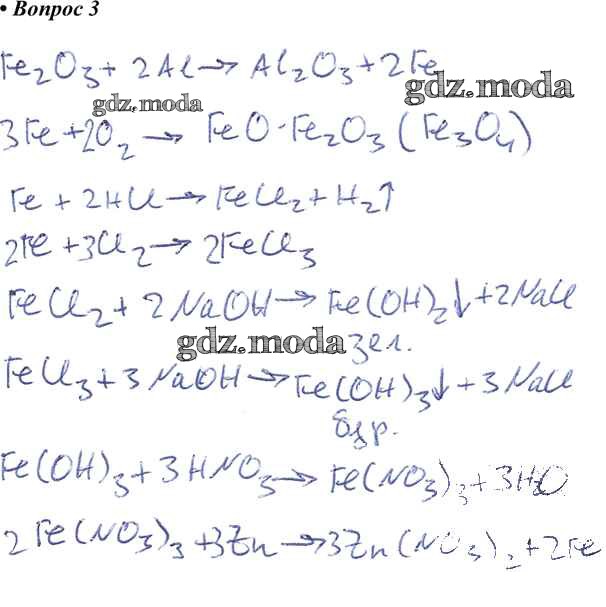 • Вопрос 3
Fe₂O₃ + 2Al → Al₂O₃ + 2Fe
gdz.moda
gdz.moda
3Fe + 2O₂ → FeO·Fe₂O₃ (Fe₃O₄)
Fe + 2HCl → FeCl₂ + H₂↑
2Fe + 3Cl₂ → 2FeCl₃
FeCl₂ + 2NaOH → Fe(OH)₂↓ + 2NaCl
gdz.moda зел.
FeCl₃ + 3NaOH → Fe(OH)₃↓ + 3NaCl
бур.
Fe(OH)₃ + 3HNO₃ → Fe(NO₃)₃ + 3H₂O
2Fe(NO₃)₃ + 3Zn → 3Zn(NO₃)₂ + 2Fe